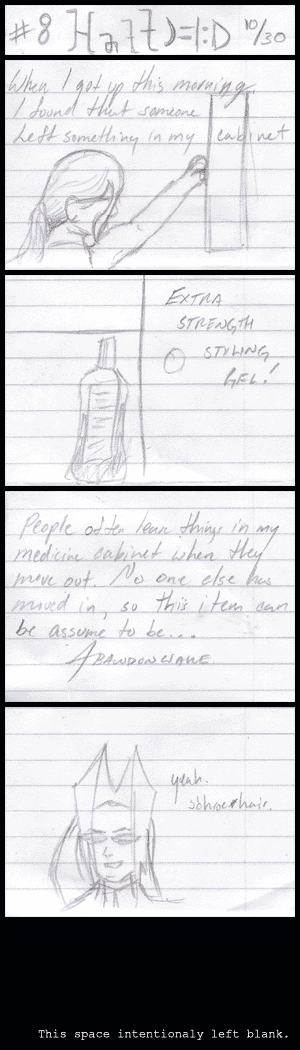 #8 10/30
When I got up this morning,
I found that someone
Left something in my cabinet
EXTRA
STRENGTH
STYLING
GEL!
People often leave things in my
medicine cabinet when they
move out. No one else has
moved in, so this item can
be assume to be...
ABANDONWARE
yeah.
hair.
This space intentionaly left blank.